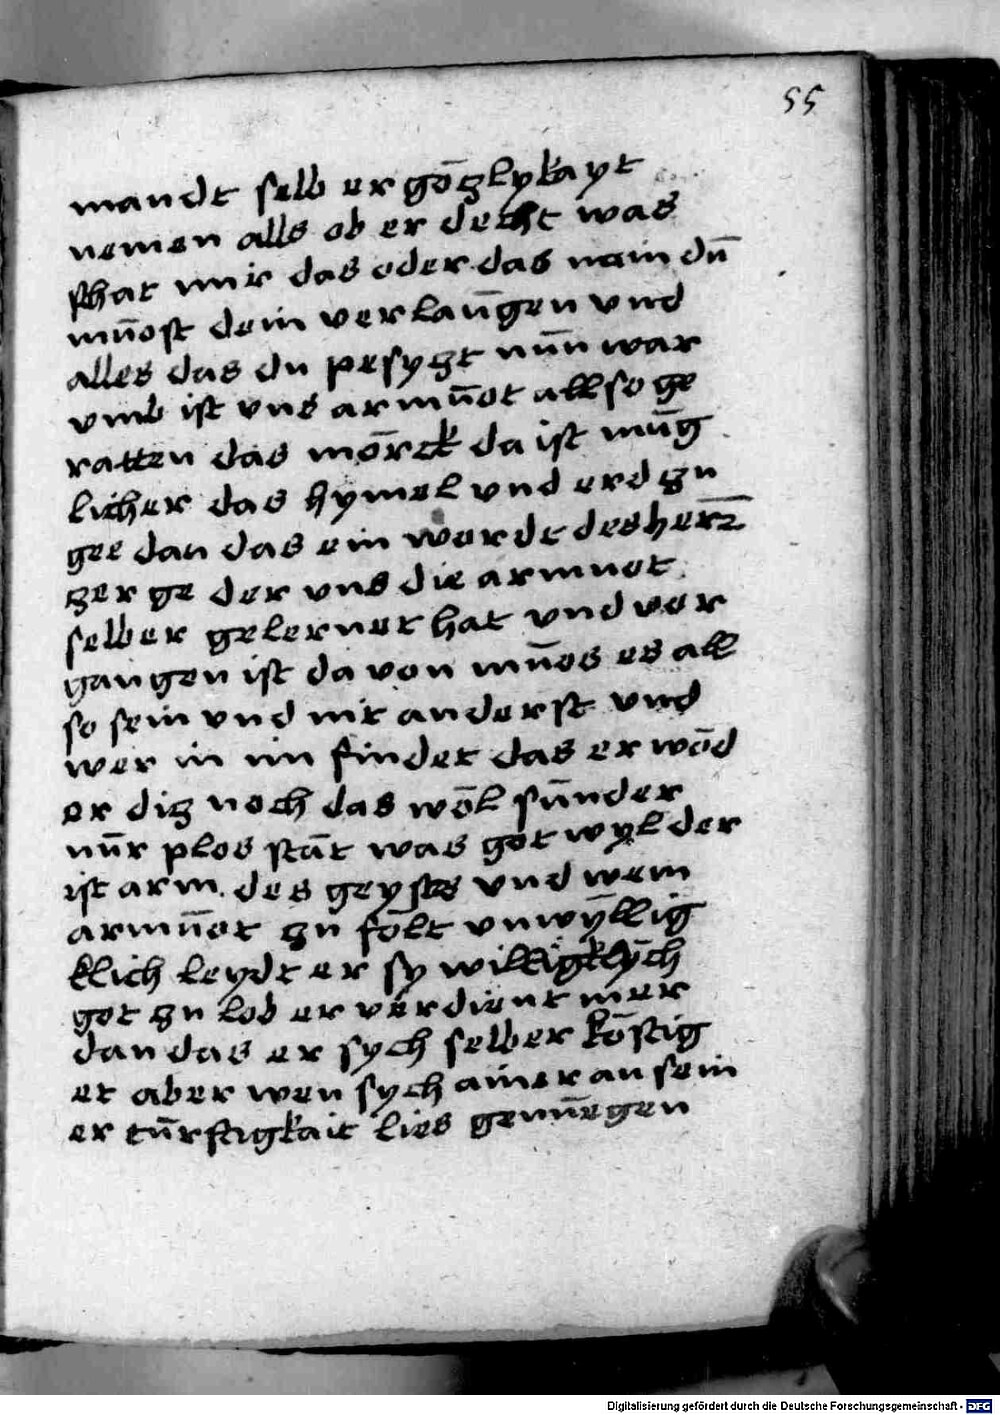 55
mandt selb er gözlykayt
nemen alls ob er decht was
schat mir das oder das nain dū
mūost dein verlaūgen vnd
alles das du pesyzt nūn war
vmb ist vns armūot allso ge
ratten das mörck da ist mūg
licher das hymel vnd erd zu
gee dan das ein wordt des herr
zer ge der vns die armuot
selber gelernet hat vnd vor
gangen ist da von mūos es all
so sein vnd nit anderst vnd
wer in im findet das er wöd
er diz noch das wöl sūnder
nūr plos stāt was got wyl der
ist arm des geystes vnd wem
armūot zu fölt vnwyllig
klich leydt er sy willigklych
got zu lob er verdient mer
dan das er sych selber köstig
et aber wen sych ainer an sein
er tūrftigkait lies genūegen
Digitalisierung gefördert durch die Deutsche Forschungsgemeinschaft - DFG